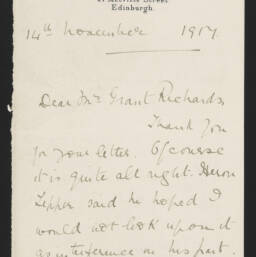 Melville Street
Edinburgh.
14th November 1917
Dear Mr Grant Richards,
Thank you
for your letter. Of course
it is quite all right. Heron
Lepper said he hoped I
would not look upon it
as interference on his part.